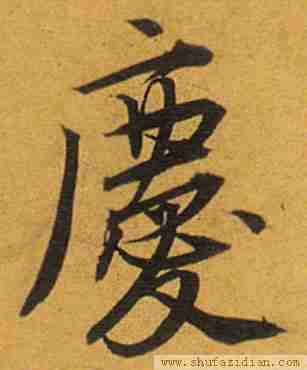 慶
www.shufazidian.com